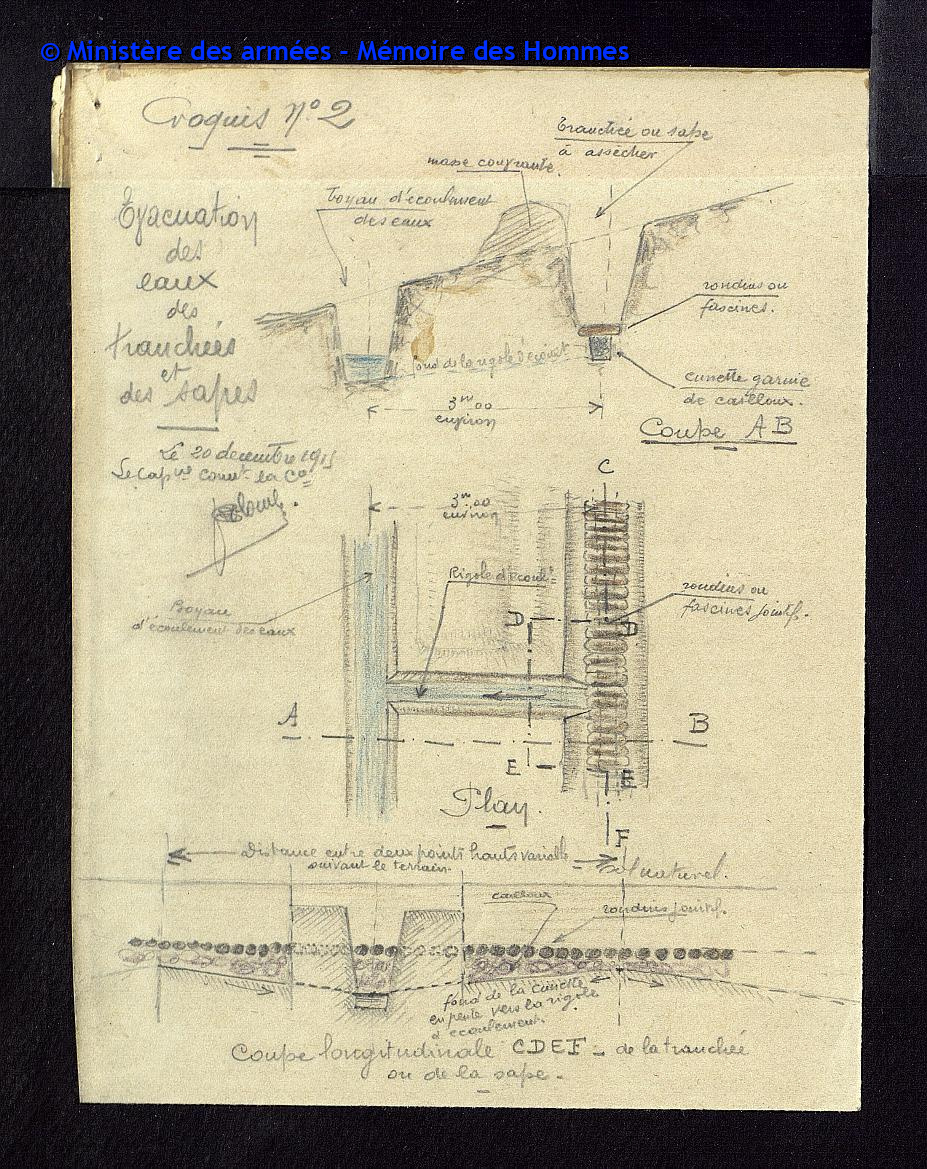 © Ministère des armées - Mémoire des Hommes
Croquis N° 2
Evacuation
des
eaux
des
tranchées
et
des sapes
Le 20 decembre 1915
Le Cap ne comt la Cie
Tranchée ou sape
à assécher
masse couvrante.
Boyau d'écoulement
des eaux
rondins ou
fascines.
fond de la rigole d'écoult
cunette garnie
de cailloux.
3m00
environ
Coupe AB
C
3m00
environ
Rigole d'écoult
rondins ou
fascines jointifs.
D
D
Boyau
d'écoulement des eaux
A
B
E
E
Plan.
F
Distance entre deux points hauts variable
suivant le terrain.
Sol naturel.
cailloux
rondins jointifs.
fond de la cunette
en pente vers la rigole
d'écoulement.
Coupe longitudinale CDEF - de la tranchée
ou de la sape -